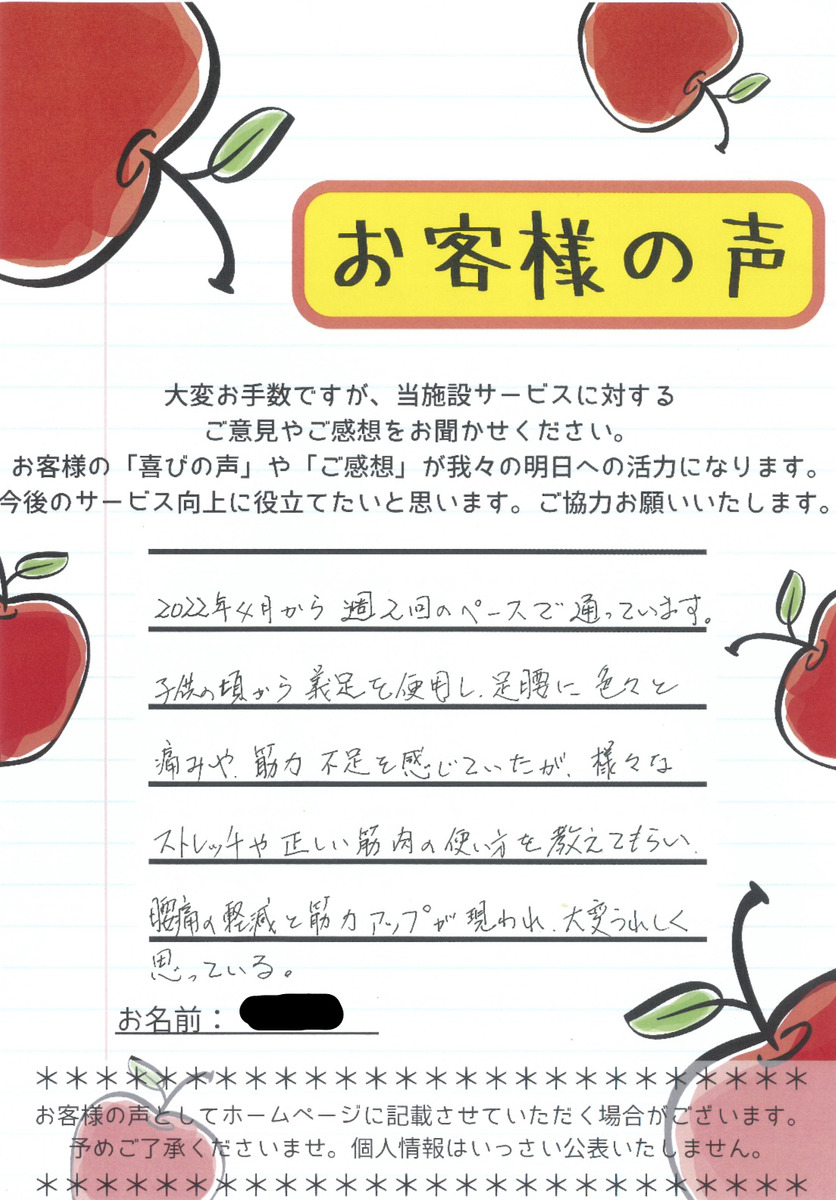 お客様の声
大変お手数ですが、当施設サービスに対する
ご意見やご感想をお聞かせください。
お客様の「喜びの声」や「ご感想」が我々の明日への活力になります。
今後のサービス向上に役立てたいと思います。ご協力お願いいたします。
2022年4月から週2回のペースで通っています。
子供の頃から義足を使用し、足腰に色々と
痛みや、筋力不足を感じていたが、様々な
ストレッチや正しい筋肉の使い方を教えてもらい、
腰痛の軽減と筋力アップが現われ、大変うれしく
思っている。
お名前：
＊＊＊＊＊＊＊＊＊＊＊＊＊＊＊＊＊＊＊＊＊＊＊＊＊＊
お客様の声としてホームページに記載させていただく場合がございます。
予めご了承くださいませ。個人情報はいっさい公表いたしません。
＊＊＊＊＊＊＊＊＊＊＊＊＊＊＊＊＊＊＊＊＊＊＊＊＊＊